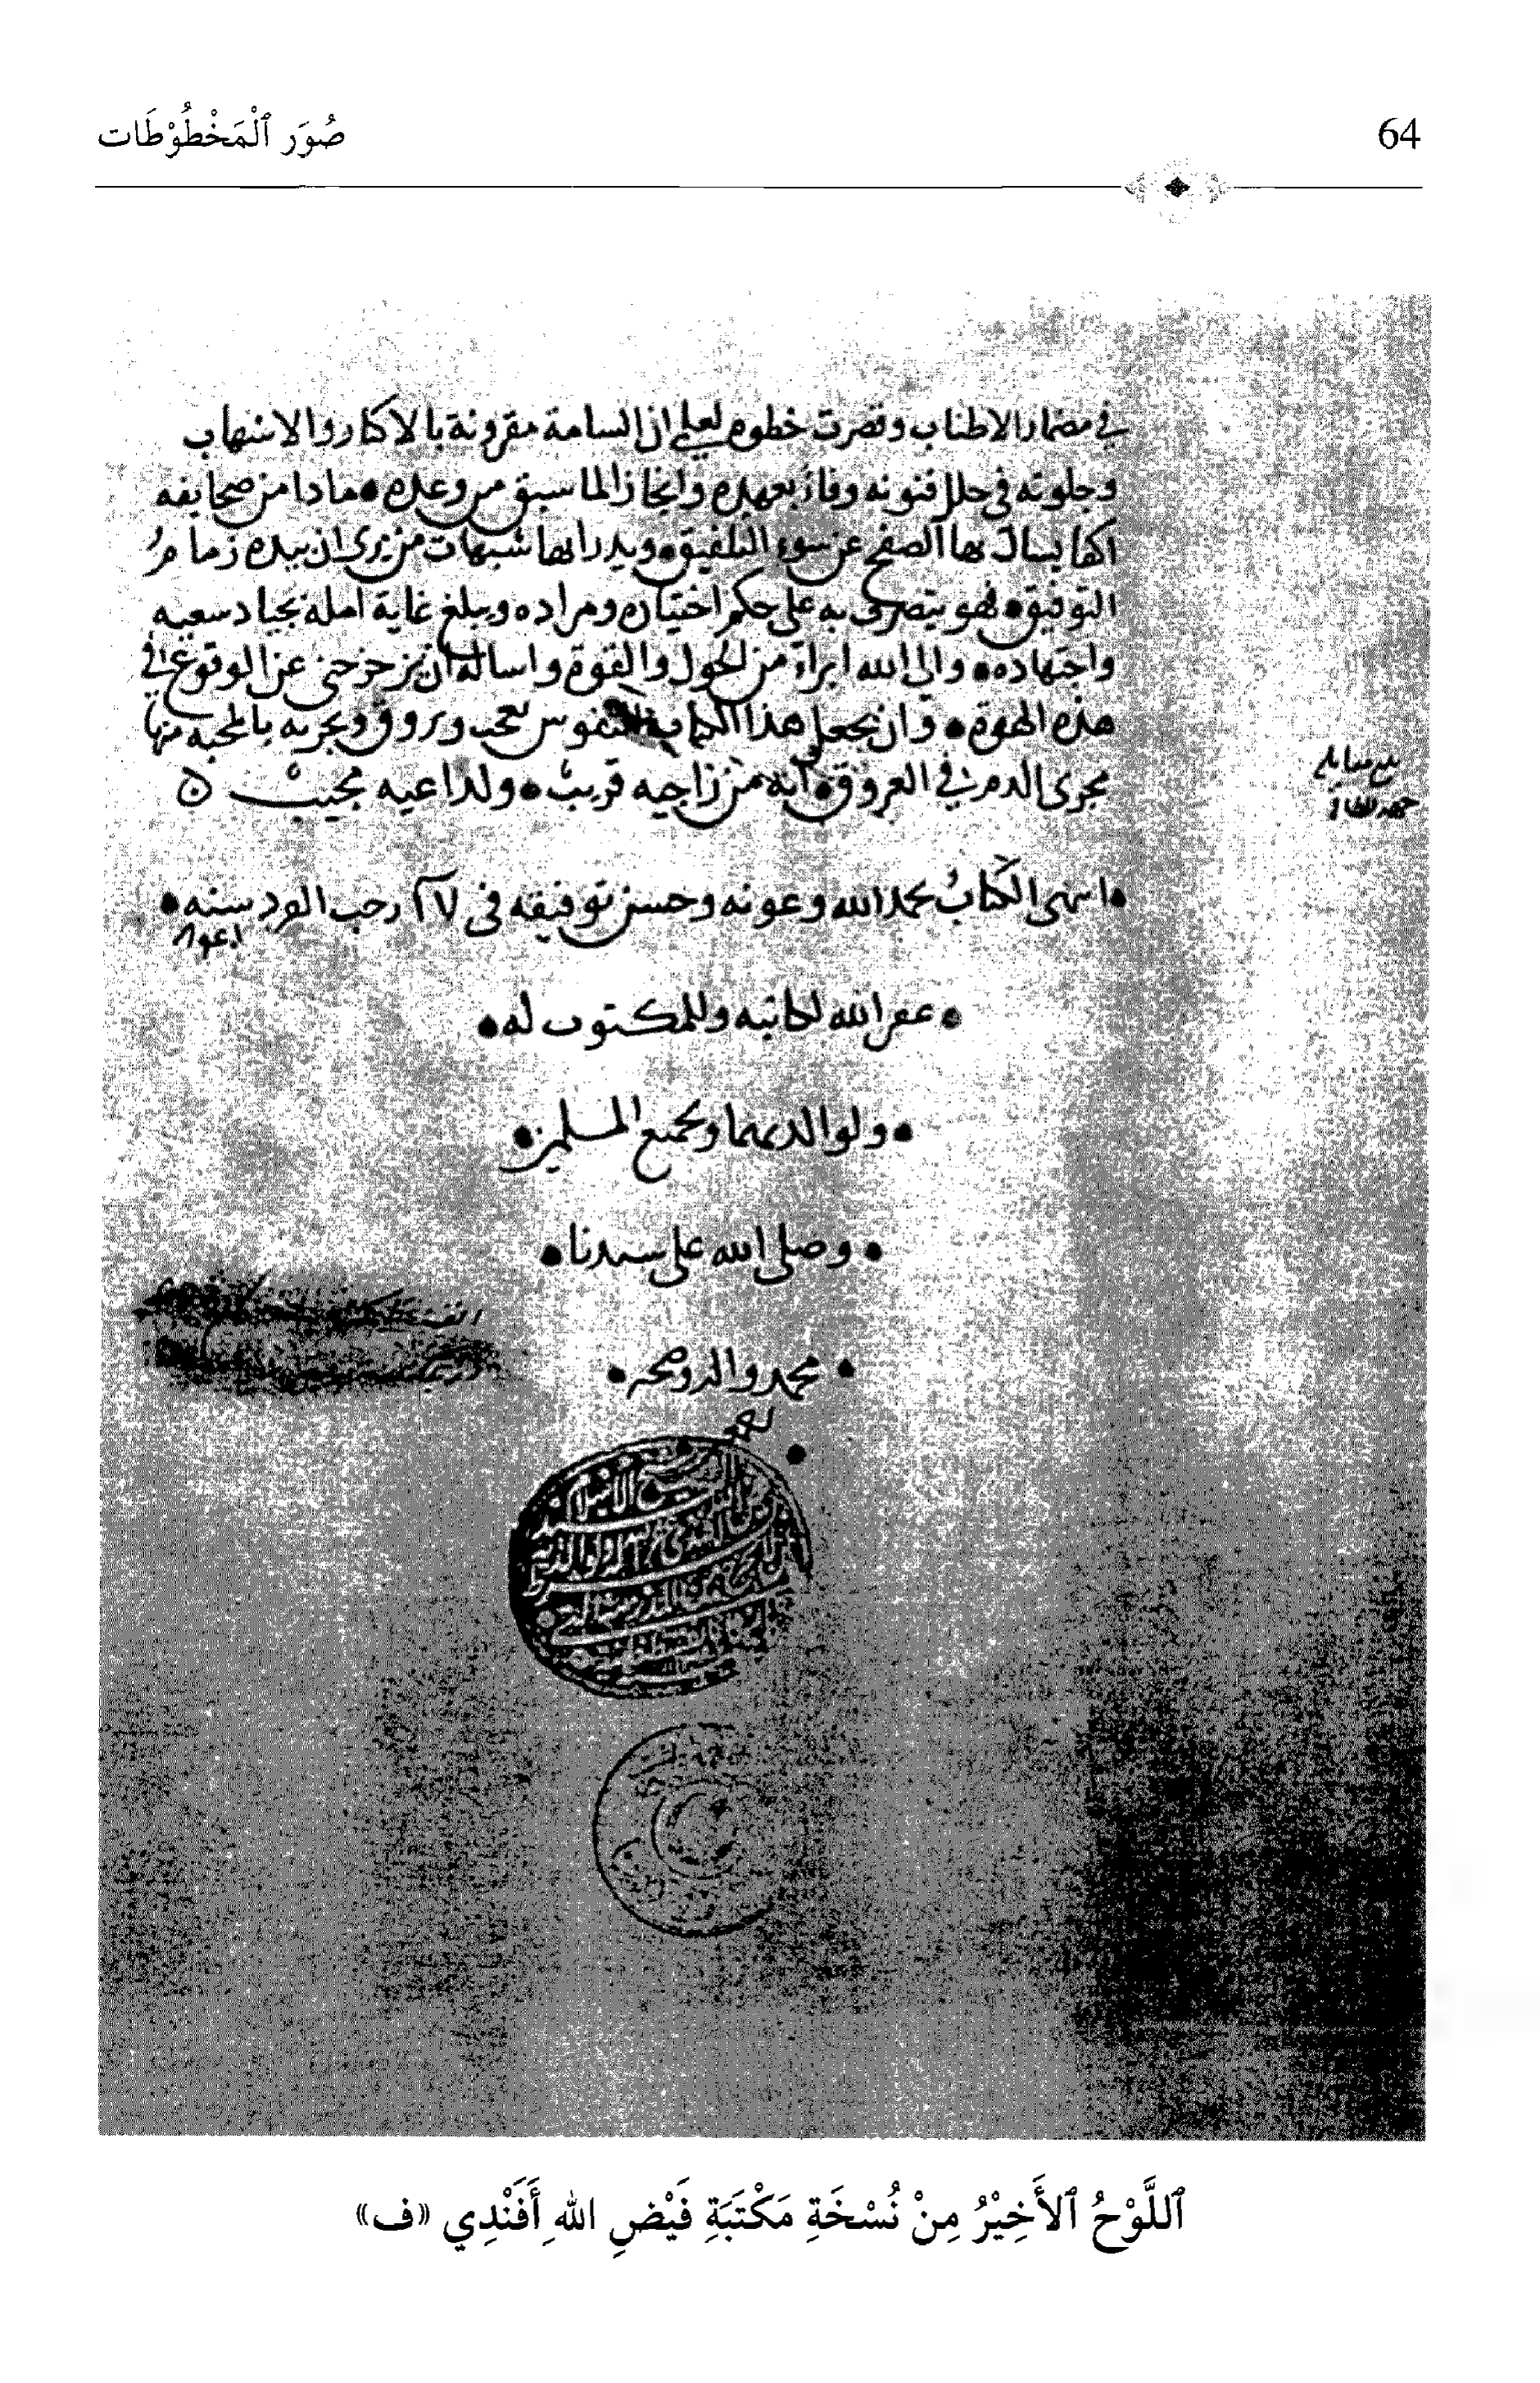 64
صُوَر ٱلْمَخْطُوْطَات
في مضمار الاطناب وقصرت خطوه لعلمي ان السامة مقرونة بالاكثار والاسهاب
وجلوته في حلل فنونه وفاءً بعهده وانجازا لما سبق من وعده • مادا من صحايفه
اكفا يسال بها الصفح عن سوء التلفيق • ويدرا بها شبهات من يرى ان بيده زمام
التوفيق • فهو يتصرف به على حكم اختياره ومراده ويبلغ غاية امله بجياد سعيه
واجتهاده • والى الله ابرأ من الحول والقوة واساله ان يزحزحني عن الوقوع في
هذه الهوة • وان يجعل هذا الكتاب للنفوس يعجب ويروق ويجريه بالمحبة منها
مجرى الدم في العروق • انه من راجيه قريب • ولداعيه مجيب
• انتهى الكتاب بحمد الله وعونه وحسن توفيقه في رجب الفرد سنه •
• غفر الله لكاتبه وللمكتوب له •
• ولوالديهما ولجميع المسلمين •
• وصلى الله على سيدنا •
• محمد واله وصحبه •
ٱللَّوْحُ ٱلأَخِيْرُ مِنْ نُسْخَةِ مَكْتَبَةِ فَيْضِ اللهِ أَفَنْدِي «ف»